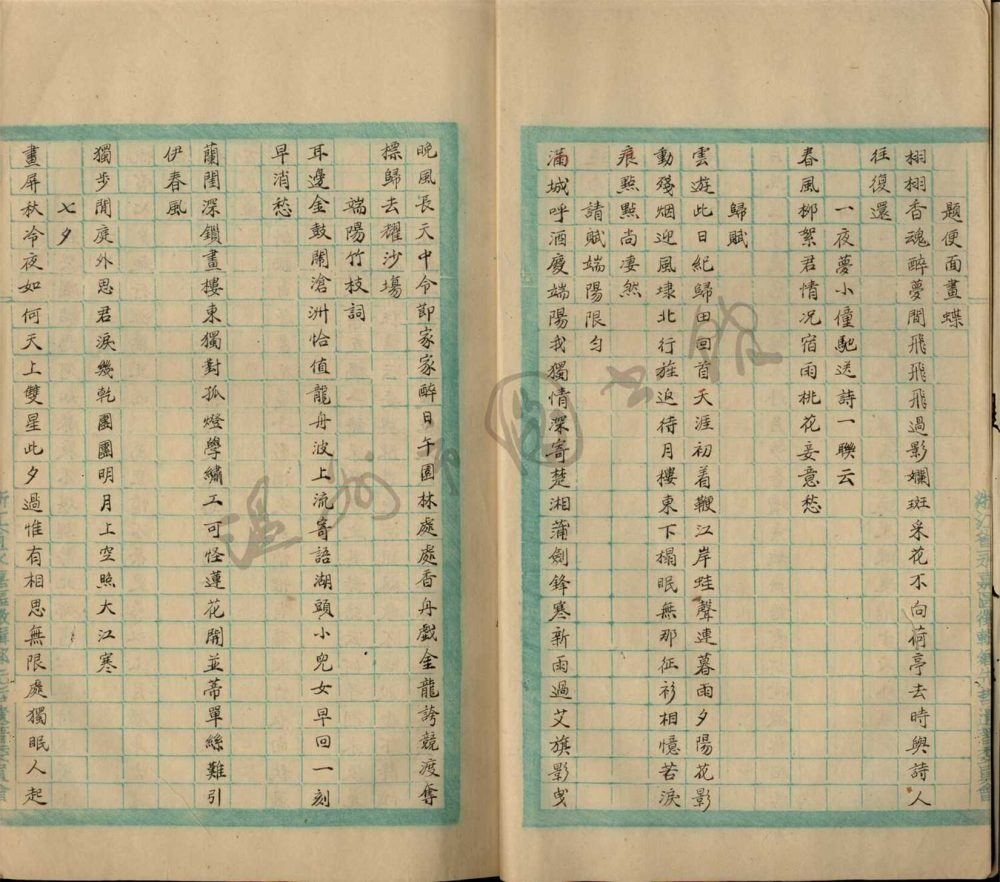 題便面畫蝶
栩栩香魂醉夢間飛飛飛過影斕斑采花不向荷亭去時與詩人
往復還
一夜夢小僮馳送詩一聯云
春風柳絮君情况宿雨桃花妾意愁
歸賦
雲遊此日紀歸田回首天涯初着鞭江岸蛙聲連暮雨夕陽花影
動殘烟迎風埭北行旌返待月樓東下榻眠無那征衫相憶若淚
痕點點尚凄然
請賦端陽限匀
滿城呼酒慶端陽我獨情深寄楚湘蒲劍鋒寒新雨過艾旗影曳
晚風長天中令節家家醉日午園林處處香舟戲金龍誇競渡奪
標歸去耀沙塲
端陽竹枝詞
耳邊金鼓鬧滄洲恰值龍舟波上流寄語湖頭小兒女早回一刻
早消愁
蘭閨深鎖畫樓東獨對孤燈學繡工可怪蓮花開並蒂單絲難引
伊春風
獨步閒庭外思君淚幾乾團團明月上空照大江寒
七夕
畫屏秋冷夜如何天上雙星此夕過惟有相思無限處獨眠人起
溫州市圖書館